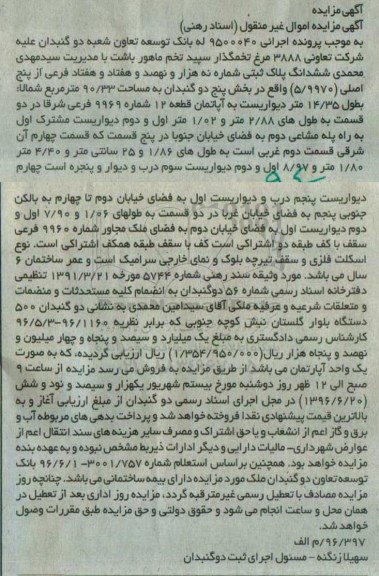 آگهی مزایده
آگهی مزایده اموال غیر منقول (اسناد رهنی)
به موجب پرونده اجرائی ۹۵۰۰۰۴۰ له بانک توسعه تعاون شعبه دو گنبدان علیه
شرکت تعاونی ۳۸۸۸ مرغ تخمگذار سپید تخم ماهور باشت با مدیریت سیدمهدی
محمدی ششدانگ پلاک ثبتی شماره نه هزار و نهصد و هفتاد و هفتاد فرعی از پنج
اصلی (۵/۹۹۷۰) واقع در بخش پنج دو گنبدان به مساحت ۹۰/۳۳ مترمربع شمالا:
بطول ۱۴/۳۵ متر دیواریست به آپاتمان قطعه ۱۲ شماره ۹۹۶۹ فرعی شرقا در دو
قسمت به طول های ۲/۸۸ متر و ۱/۰۲ متر اول و دوم دیواریست مشترک اول
به راه پله مشاعی دوم به فضای خیابان جنوبا در پنج قسمت که قسمت چهارم آن
شرقی قسمت دوم غربی است به طول های ۱/۸۶ و ۲۵ سانتی متر و ۴/۴۰ متر
۱/۸۰ متر و ۸/۹۷ اول و دوم دیواریست سوم درب و دیوار و پنجره است چهارم
دیواریست پنجم درب و دیواریست اول به فضای خیابان دوم تا چهارم به بالکن
جنوبی پنجم به فضای خیابان غربا در دو قسمت به طولهای ۱/۰۶ و ۷/۹۰ اول و
دوم دیواریست اول به فضای خیابان دوم به فضای ملک مجاور شماره ۹۹۶۰ فرعی
سقف با کف طبقه دو اشتراکی است کف با سقف طبقه همکف اشتراکی است. نوع
اسکلت فلزی و سقف تیرچه بلوک و نمای خارجی سرامیک است و عمر ساختمان ۶
سال می باشد. مورد وثیقه سند رهنی شماره ۵۷۴۴ مورخه ۱۳۹۱/۳/۲۱ تنظیمی
دفترخانه اسناد رسمی شماره ۵۶ دوگنبدان به انضمام کلیه مستحدثات و منضمات
و متعلقات شرعیه و عرفیه ملکی آقای سیدامین محمدی به نشانی دو گنبدان ۵۰۰
دستگاه بلوار گلستان نبش کوچه جنوبی که برابر نظریه ۹۶/۵/۳-۹۶/۱۱۶۰
کارشناس رسمی دادگستری به مبلغ یک میلیارد و سیصد و پنجاه و چهار میلیون و
نهصد و پنجاه هزار ریال(۱/۳۵۴/۹۵۰/۰۰۰) ریال ارزیابی گردیده، که به صورت
یک واحد آپارتمان می باشد از طریق مزایده به فروش می رسد مزایده از ساعت ۹
صبح الی ۱۲ ظهر روز دوشنبه مورخ بیستم شهریور یکهزار و سیصد و نود و شش
(۱۳۹۶/۶/۲۰) در مجل اجرای اسناد رسمی دو گنبدان از مبلغ ارزیابی آغاز و به
بالاترین قیمت پیشنهادی نقدا فروخته خواهد شد و پرداخت بدهی های مربوطه آب و
برق و گاز اعم از انشعاب و یا حق اشتراک و مصرف سایر هزینه های سند انتقال اعم از
عوارض شهرداری- مالیات دارایی و دیگر ادارات ذیربط مشخص نبوده و به عهده بنده
مزایده خواهد بود. همچنین بر اساس استعلام شماره ۳۰۰۱/۷۵۷- ۹۶/۶/۱ بانک
توسعه تعاون دو گنبدان ملک مورد مزایده دارای بیمه ساختمانی می باشد. چنانچه روز
مزایده مصادف با تعطیل رسمی غیرمترقبه گردد، مزایده روز اداری بعد از تعطیل در
همان محل و ساعت انجام می شود و حقوق دولتی و حق مزایده طبق مقررات وصول
خواهد شد.
۹۶/۳۹۷/م الف
سهیلا زنگنه - مسئول اجرای ثبت دوگنبدان